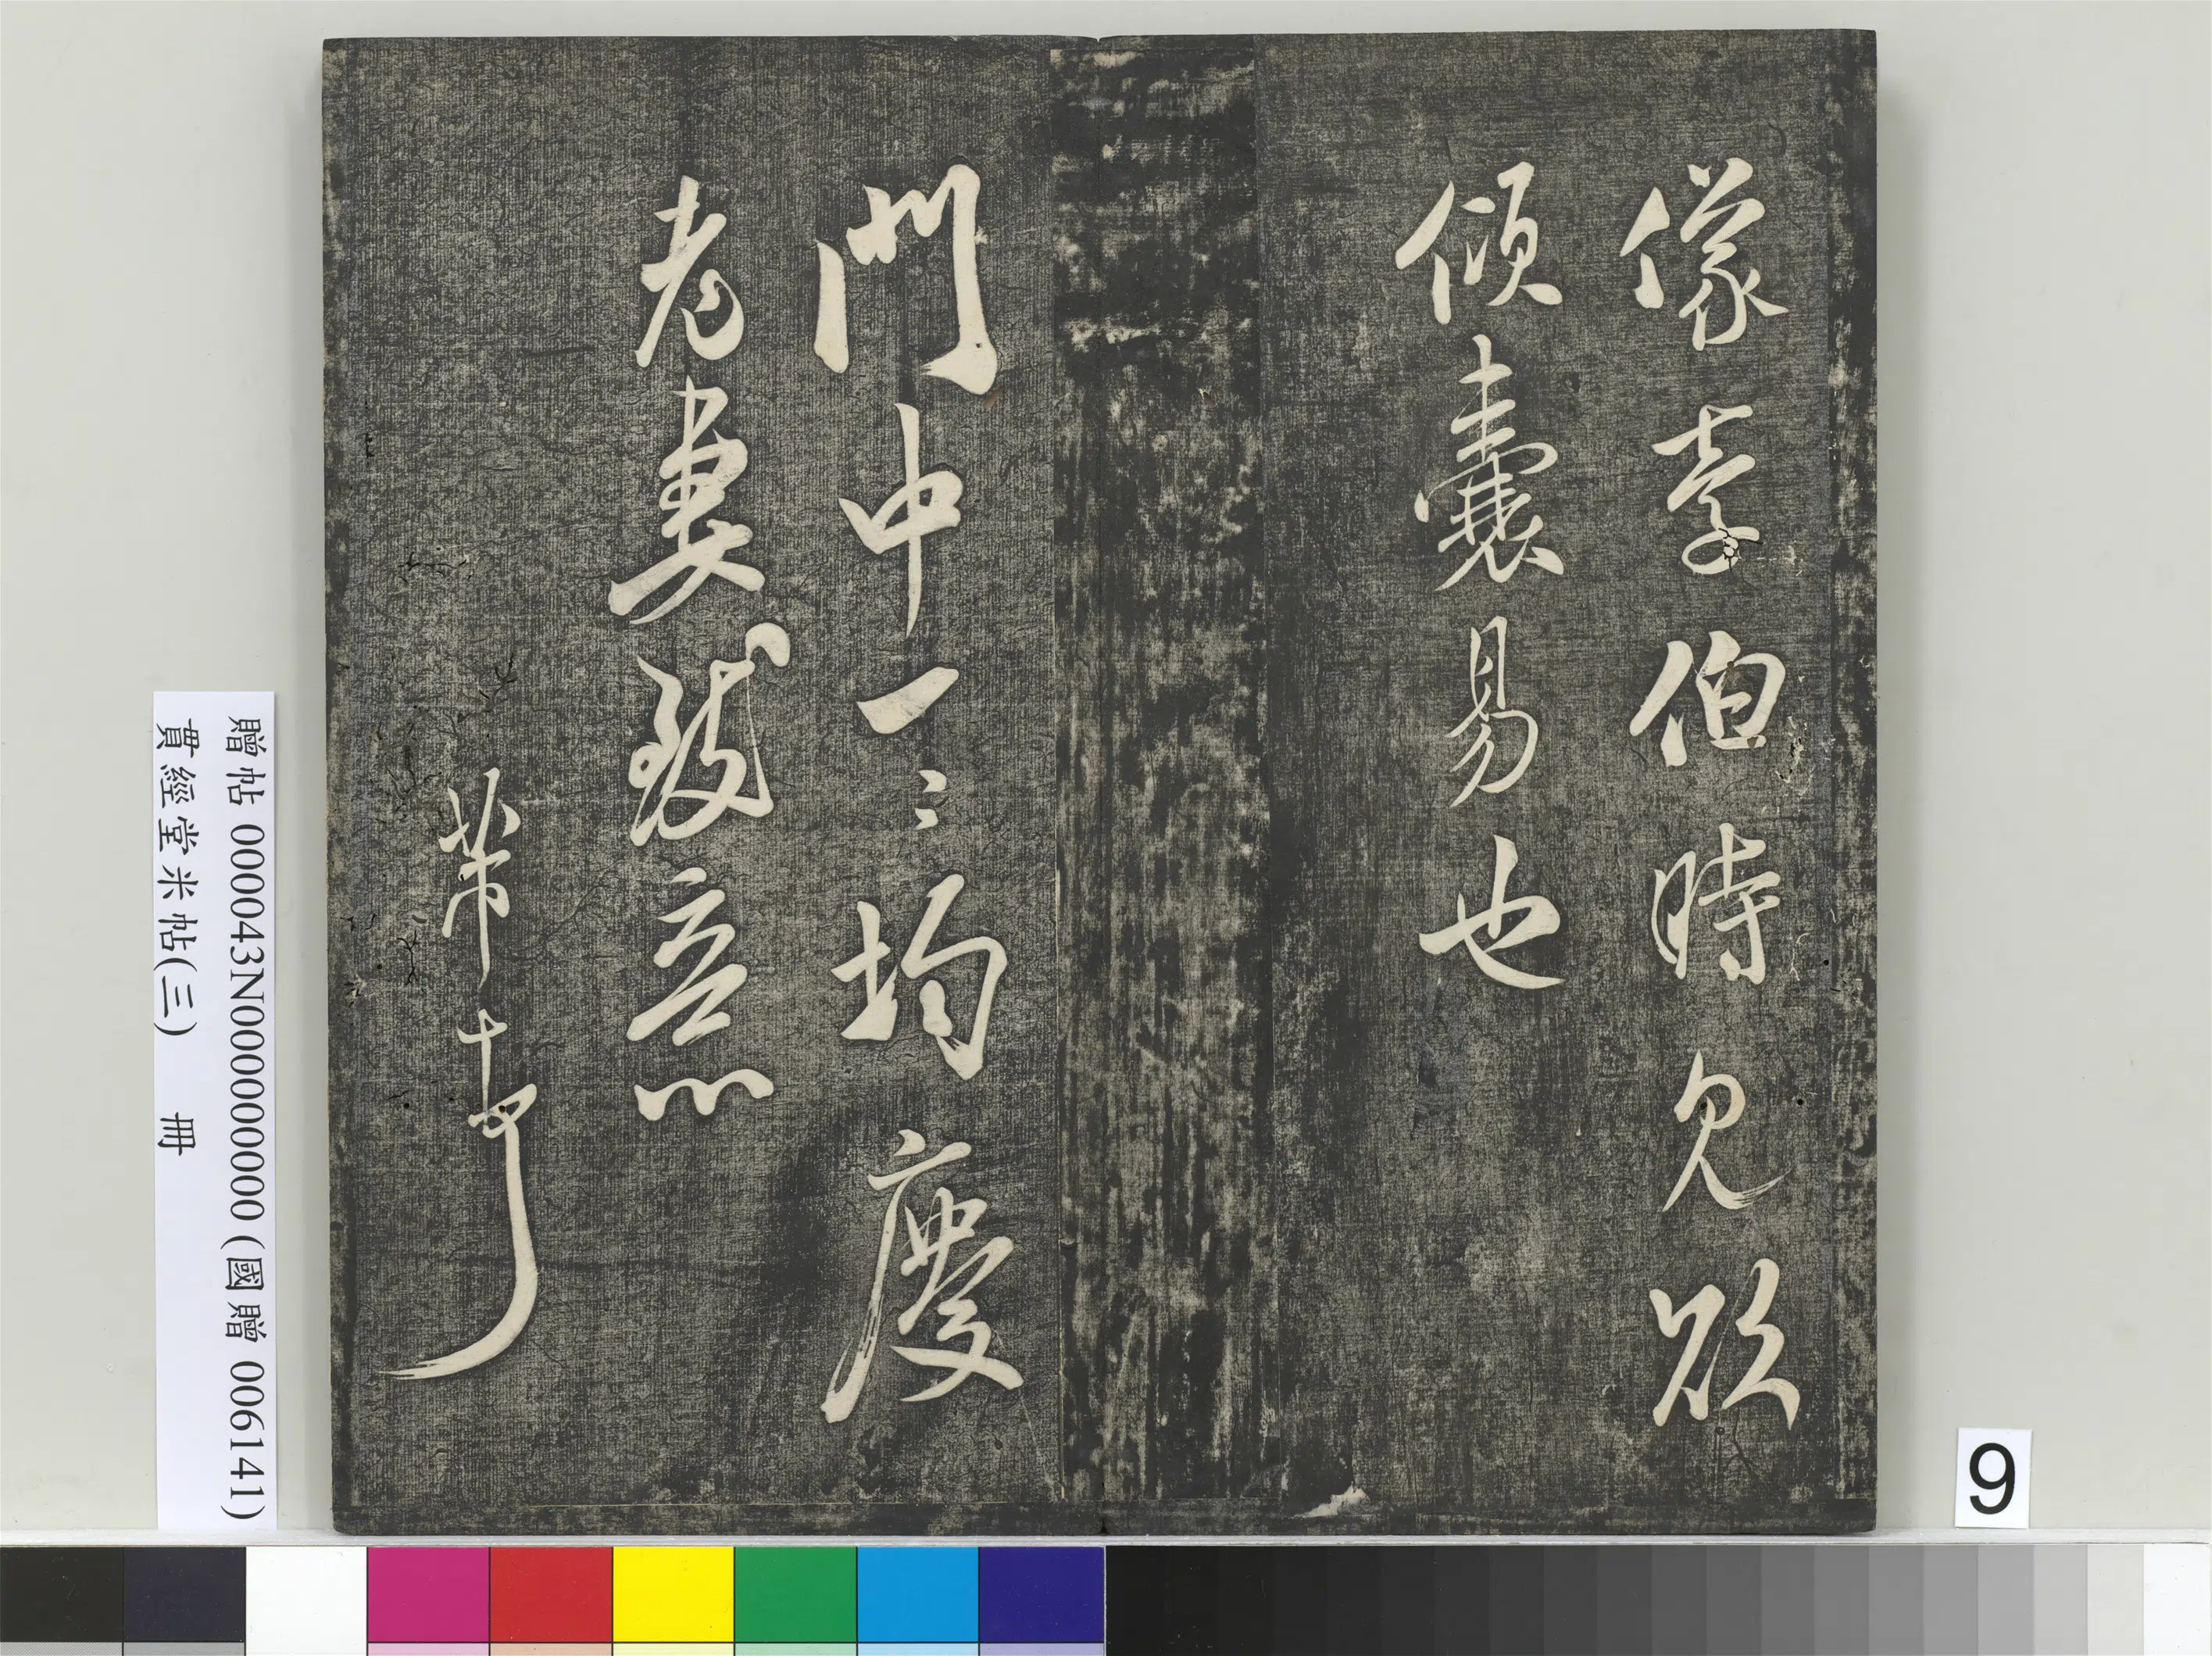 像李伯時見欲
傾囊易也
門中一一均慶
老妻致意
芾頓首
贈帖 000043N000000000 (國贈 006141)
貫經堂米帖(三) 冊
9